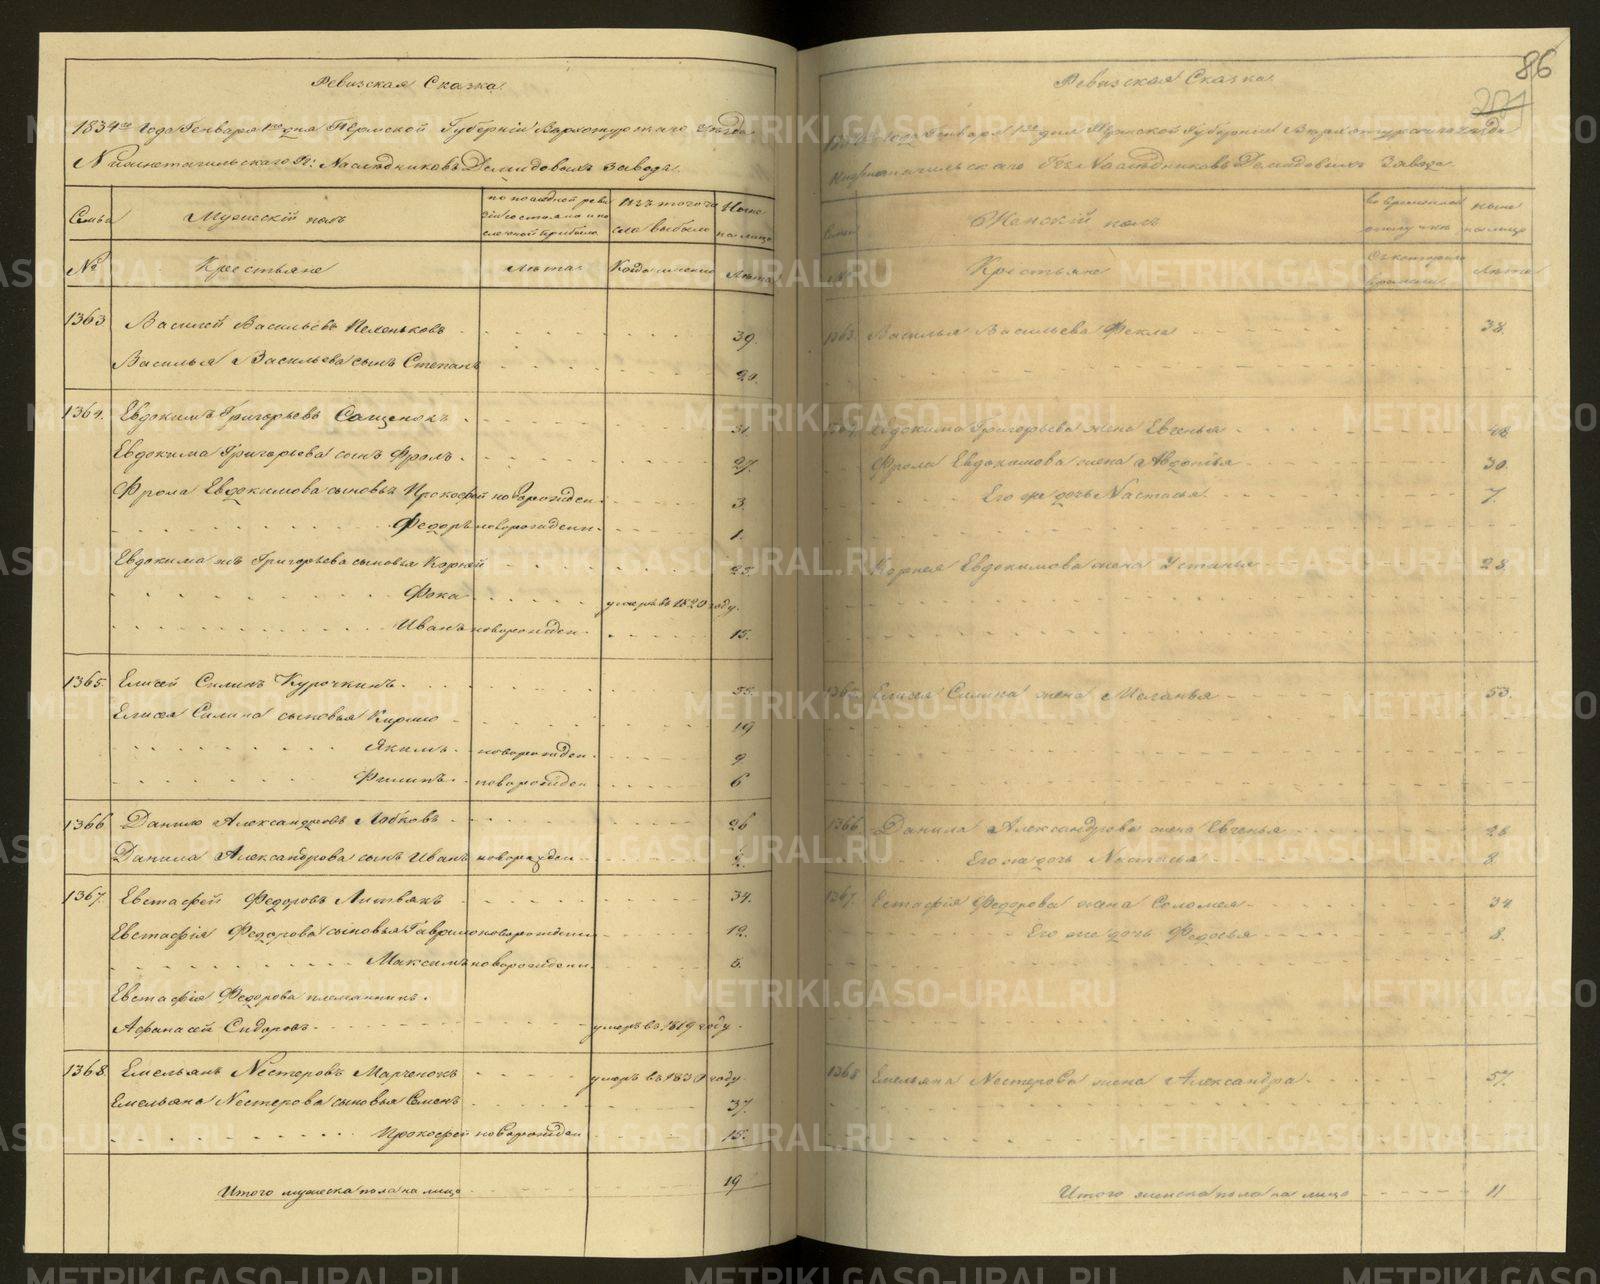 Ревизская Сказка
1834го года Генваря 1го дня Пермской Губернии Верхотурскаго уезда
Нижнетагильскаго Гг: Наследниковъ Демидовыхъ Завода.
Семьи Мужеский полъ по последней ревизии состояло и после оной прибыло Изъ того числа выбыло Ныне на лицо
№ Крестьяне лета Когда именно Лета
1363 Василей Васильевъ 39.
Василья Васильева сынъ Степанъ 20.
1364. Евдокимъ Григорьевъ Сащенокъ
Евдокима Григорьева сынъ Фролъ. 27.
Фрола Евдокимова сыновья Прокофей новорожден. 3.
Федоръ новорожденн. 1.
Евдокима жъ Григорьева сыновья Корней 25.
Фока умеръ въ 1820 году.
Иванъ новорожден. 15.
1365 Елисей Силинъ Курочкинъ. 55.
Елисея Силина сыновья Кирило 19
Якимъ. новорожден. 9.
Филипъ. новорожден 6
1366 Данило Александровъ Лобковъ. 26
Данила Александрова сынъ Иванъ новорожден
1367. Евстафей Федоровъ Литвякъ 34.
Евстафия Федорова сыновья Гаврило новорожденн 12.
Максимъ новорожденн. 5.
Евстафия Федорова племянникъ.
Афанасей Сидоровъ. умеръ въ 1819 году.
1368 Емельянъ Нестеровъ Марченокъ умеръ въ 1830 году.
Емельяна Нестерова сыновья Семенъ 37.
Прокофей новорожден 15.
Итого мужеска пола на лицо 19
86
271
Ревизская Сказка
1834го года Генваря 1го дня Пермской Губернии Верхотурскаго уезда
Нижнетагильскаго Гг: Наследниковъ Демидовыхъ Завода.
Семьи Женский полъ во временной отлучке ныне на лицо
№ Крестьяне Съ котораго времени Лета
1363. Василья Васильева Фекла 38.
1364. Евдокима Григорьева жена Евгенья 48
Фрола Евдокимова жена Авдотья 30.
Его же дочь Настасья. 7.
Корнея Евдокимова жена Устинья 28.
1365 Елисея Силина жена Меланья 53.
1366 Данила Александрова жена Евгенья 26
Его же дочь Настасья 8.
1367. Естафия Федорова жена Соломея 34
Его же дочь Федосья 8.
1368 Емельяна Нестерова жена Александра 57.
Итого женска пола на лицо 11
METRIKI.GASO-URAL.RU